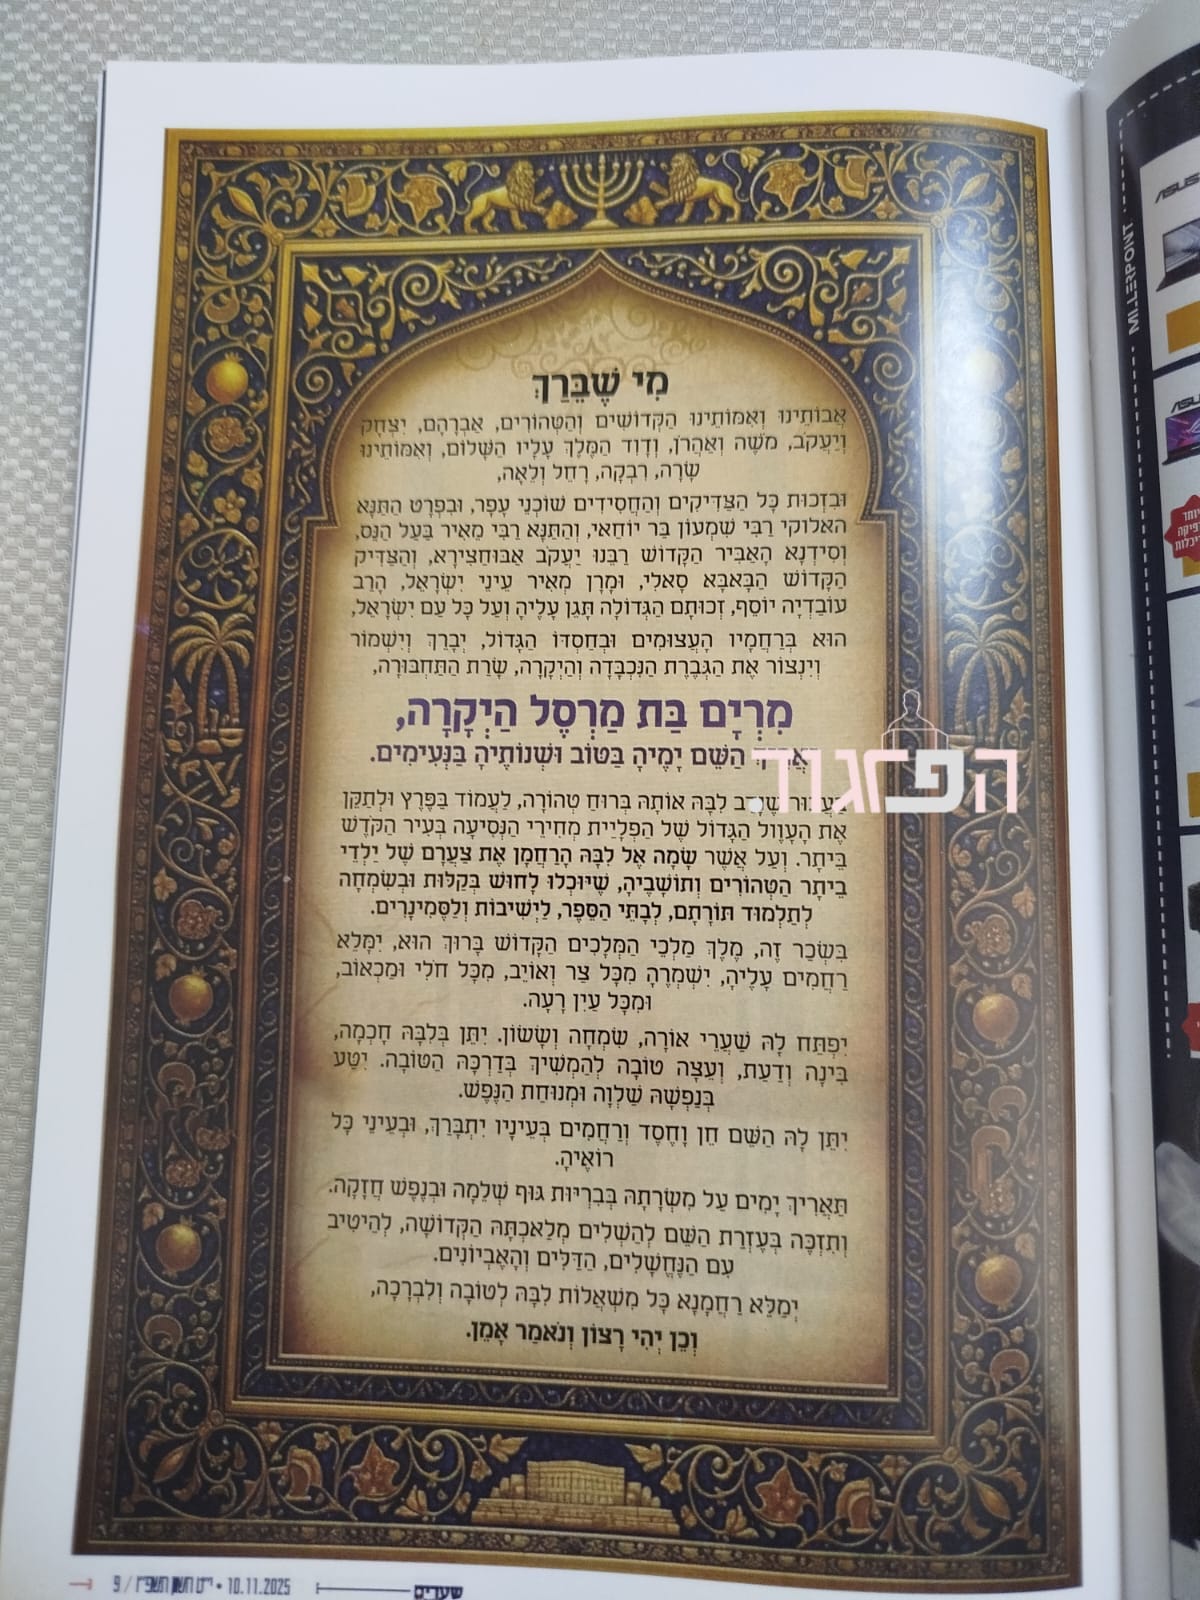 מִי שֶׁבֵּרַךְ
אֲבוֹתֵינוּ וְאִמּוֹתֵינוּ הַקְּדוֹשִׁים וְהַטְּהוֹרִים, אַבְרָהָם, יִצְחָק
וְיַעֲקֹב, מֹשֶׁה וְאַהֲרֹן, וְדָוִד הַמֶּלֶךְ עָלָיו הַשָּׁלוֹם, וְאִמּוֹתֵינוּ
שָׂרָה, רִבְקָה, רָחֵל וְלֵאָה,
וּבִזְכוּת כָּל הַצַּדִּיקִים וְהַחֲסִידִים שׁוֹכְנֵי עָפָר, וּבִפְרָט הַתַּנָּא
הָאֱלוֹקִי רַבִּי שִׁמְעוֹן בַּר יוֹחַאי, וְהַתַּנָּא רַבִּי מֵאִיר בַּעַל הַנֵּס,
וְסִידְנָא הָאַבִּיר הַקָּדוֹשׁ רַבֵּנוּ יַעֲקֹב אַבּוּחֲצִירָא, וְהַצַּדִּיק
הַקָּדוֹשׁ הַבָּאבָּא סָאלִי, וּמָרָן מְאִיר עֵינֵי יִשְׂרָאֵל, הָרַב
עוֹבַדְיָה יוֹסֵף, זְכוּתָם הַגְּדוֹלָה תָּגֵן עָלֶיהָ וְעַל כָּל עַם יִשְׂרָאֵל,
הוּא בְּרַחֲמָיו הָעֲצוּמִים וּבְחַסְדּוֹ הַגָּדוֹל, יְבָרֵךְ וְיִשְׁמוֹר
וְיִנְצוֹר אֶת הַגְּבֶרֶת הַנִּכְבָּדָה וְהַיְקָרָה, שָׂרַת הַתַּחְבּוּרָה,
מִרְיָם בַּת מַרְסֶל הַיְקָרָה,
הַשֵּׁם יָמֶיהָ בַּטּוֹב וּשְׁנוֹתֶיהָ בַּנְּעִימִים.
הפאגוד.
לִבָּהּ אוֹתָהּ בְּרוּחַ טְהוֹרָה, לַעֲמוֹד בַּפֶּרֶץ וּלְתַקֵּן
אֶת הָעָוֶול הַגָּדוֹל שֶׁל הַפְלָיַית מְחִירֵי הַנְּסִיעָה בְּעִיר הַקֹּדֶשׁ
בֵּיתָר. וְעַל אֲשֶׁר שָׂמָה אֶל לִבָּהּ הָרַחְמָן אֶת צַעֲרָם שֶׁל יַלְדֵי
בֵּיתָר הַטְּהוֹרִים וְתוֹשָׁבֶיהָ, שֶׁיּוּכְלוּ לָחוּשׁ בְּקַלּוּת וּבְשִׂמְחָה
לְתַלְמוּד תּוֹרָתָם, לְבָתֵּי הַסֵּפֶר, לַיְשִׁיבוֹת וְלַסֶּמִינָרִים.
בִּשְׂכַר זֶה, מֶלֶךְ מַלְכֵי הַמְּלָכִים הַקָּדוֹשׁ בָּרוּךְ הוּא, יִמָּלֵא
רַחֲמִים עָלֶיהָ, יִשְׁמְרֶהָ מִכָּל צַר וְאוֹיֵב, מִכָּל חֹלִי וּמַכְאוֹב,
וּמִכָּל עַיִן רָעָה.
יִפְתַּח לָהּ שַׁעֲרֵי אוֹרָה, שִׂמְחָה וְשָׂשׂוֹן. יִתֵּן בְּלִבָּהּ חָכְמָה,
בִּינָה וְדַעַת, וְעֵצָה טוֹבָה לְהַמְשִׁיךְ בְּדַרְכָּהּ הַטּוֹבָה. יִטַּע
בְּנַפְשָׁהּ שַׁלְוָה וּמְנוּחַת הַנֶּפֶשׁ.
יִתֵּן לָהּ הַשֵּׁם חֵן וָחֶסֶד וְרַחֲמִים בְּעֵינָיו יִתְבָּרַךְ, וּבְעֵינֵי כָּל
רוֹאֶיהָ.
תַּאֲרִיךְ יָמִים עַל מִשְׂרָתָהּ בִּבְרִיּוּת גּוּף שְׁלֵמָה וּבְנֶפֶשׁ חֲזָקָה.
וְתִזְכֶּה בְּעֶזְרַת הַשֵּׁם לְהַשְׁלִים מְלַאכְתָּהּ הַקְּדוֹשָׁה, לְהֵיטִיב
עִם הַנֶּחֱשָׁלִים, הַדַּלִּים וְהָאֶבְיוֹנִים.
יְמַלֵּא רַחֲמָנָא כָּל מִשְׁאֲלוֹת לִבָּהּ לְטוֹבָה וְלִבְרָכָה,
וְכֵן יְהִי רָצוֹן וְנֹאמַר אָמֵן.
שערים י"ט חשון תשפ"ו • 10.11.2025 / 9
MILLERPOINT
ASUS